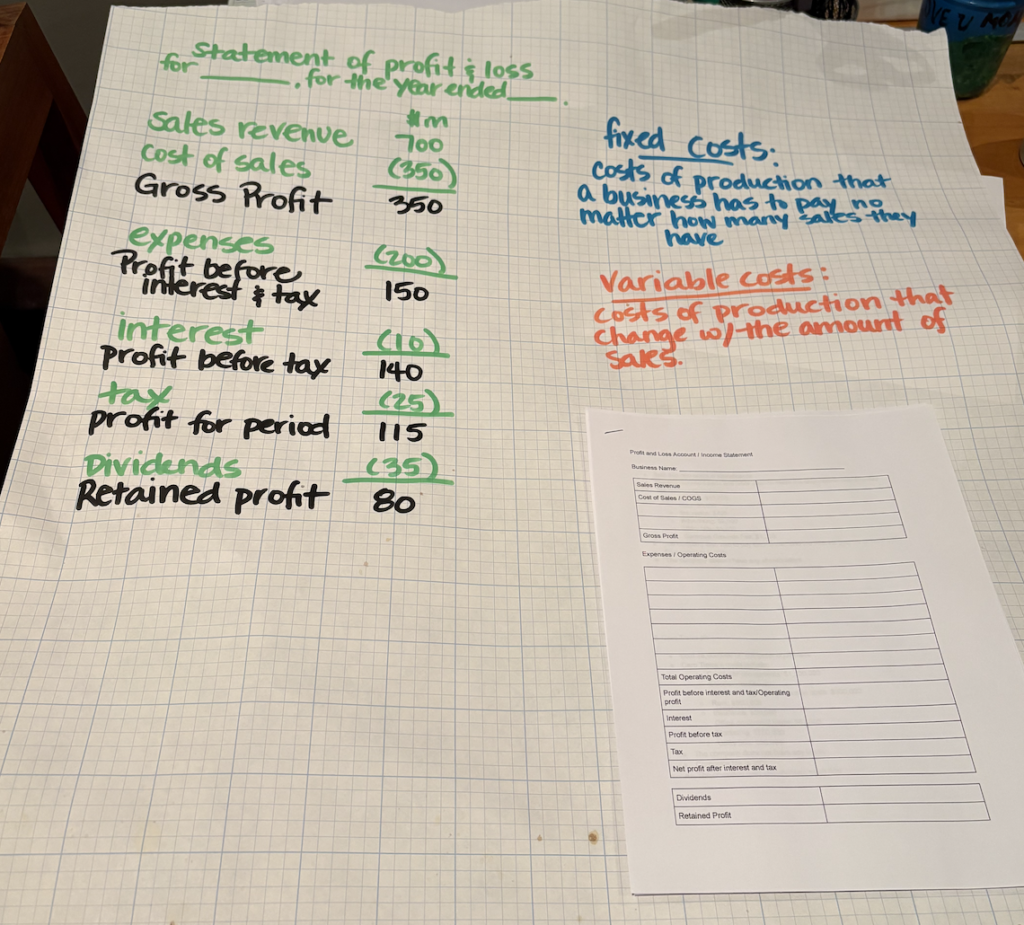 Statement of profit & loss
for ______, for the year ended ____.
$m
Sales revenue 700
Cost of sales (350)
Gross Profit 350
expenses (200)
Profit before
interest & tax 150
interest (10)
profit before tax 140
tax (25)
profit for period 115
Dividends (35)
Retained profit 80
fixed costs:
costs of production that
a business has to pay no
matter how many sales they
have
Variable costs:
costs of production that
change w/ the amount of
sales.
Profit and Loss Account / Income Statement
Business Name: ______
Sales Revenue
Cost of Sales / COGS
Gross Profit
Expenses / Operating Costs
Total Operating Costs
Profit before interest and tax/Operating
profit
Interest
Profit before tax
Tax
Net profit after interest and tax
Dividends
Retained Profit